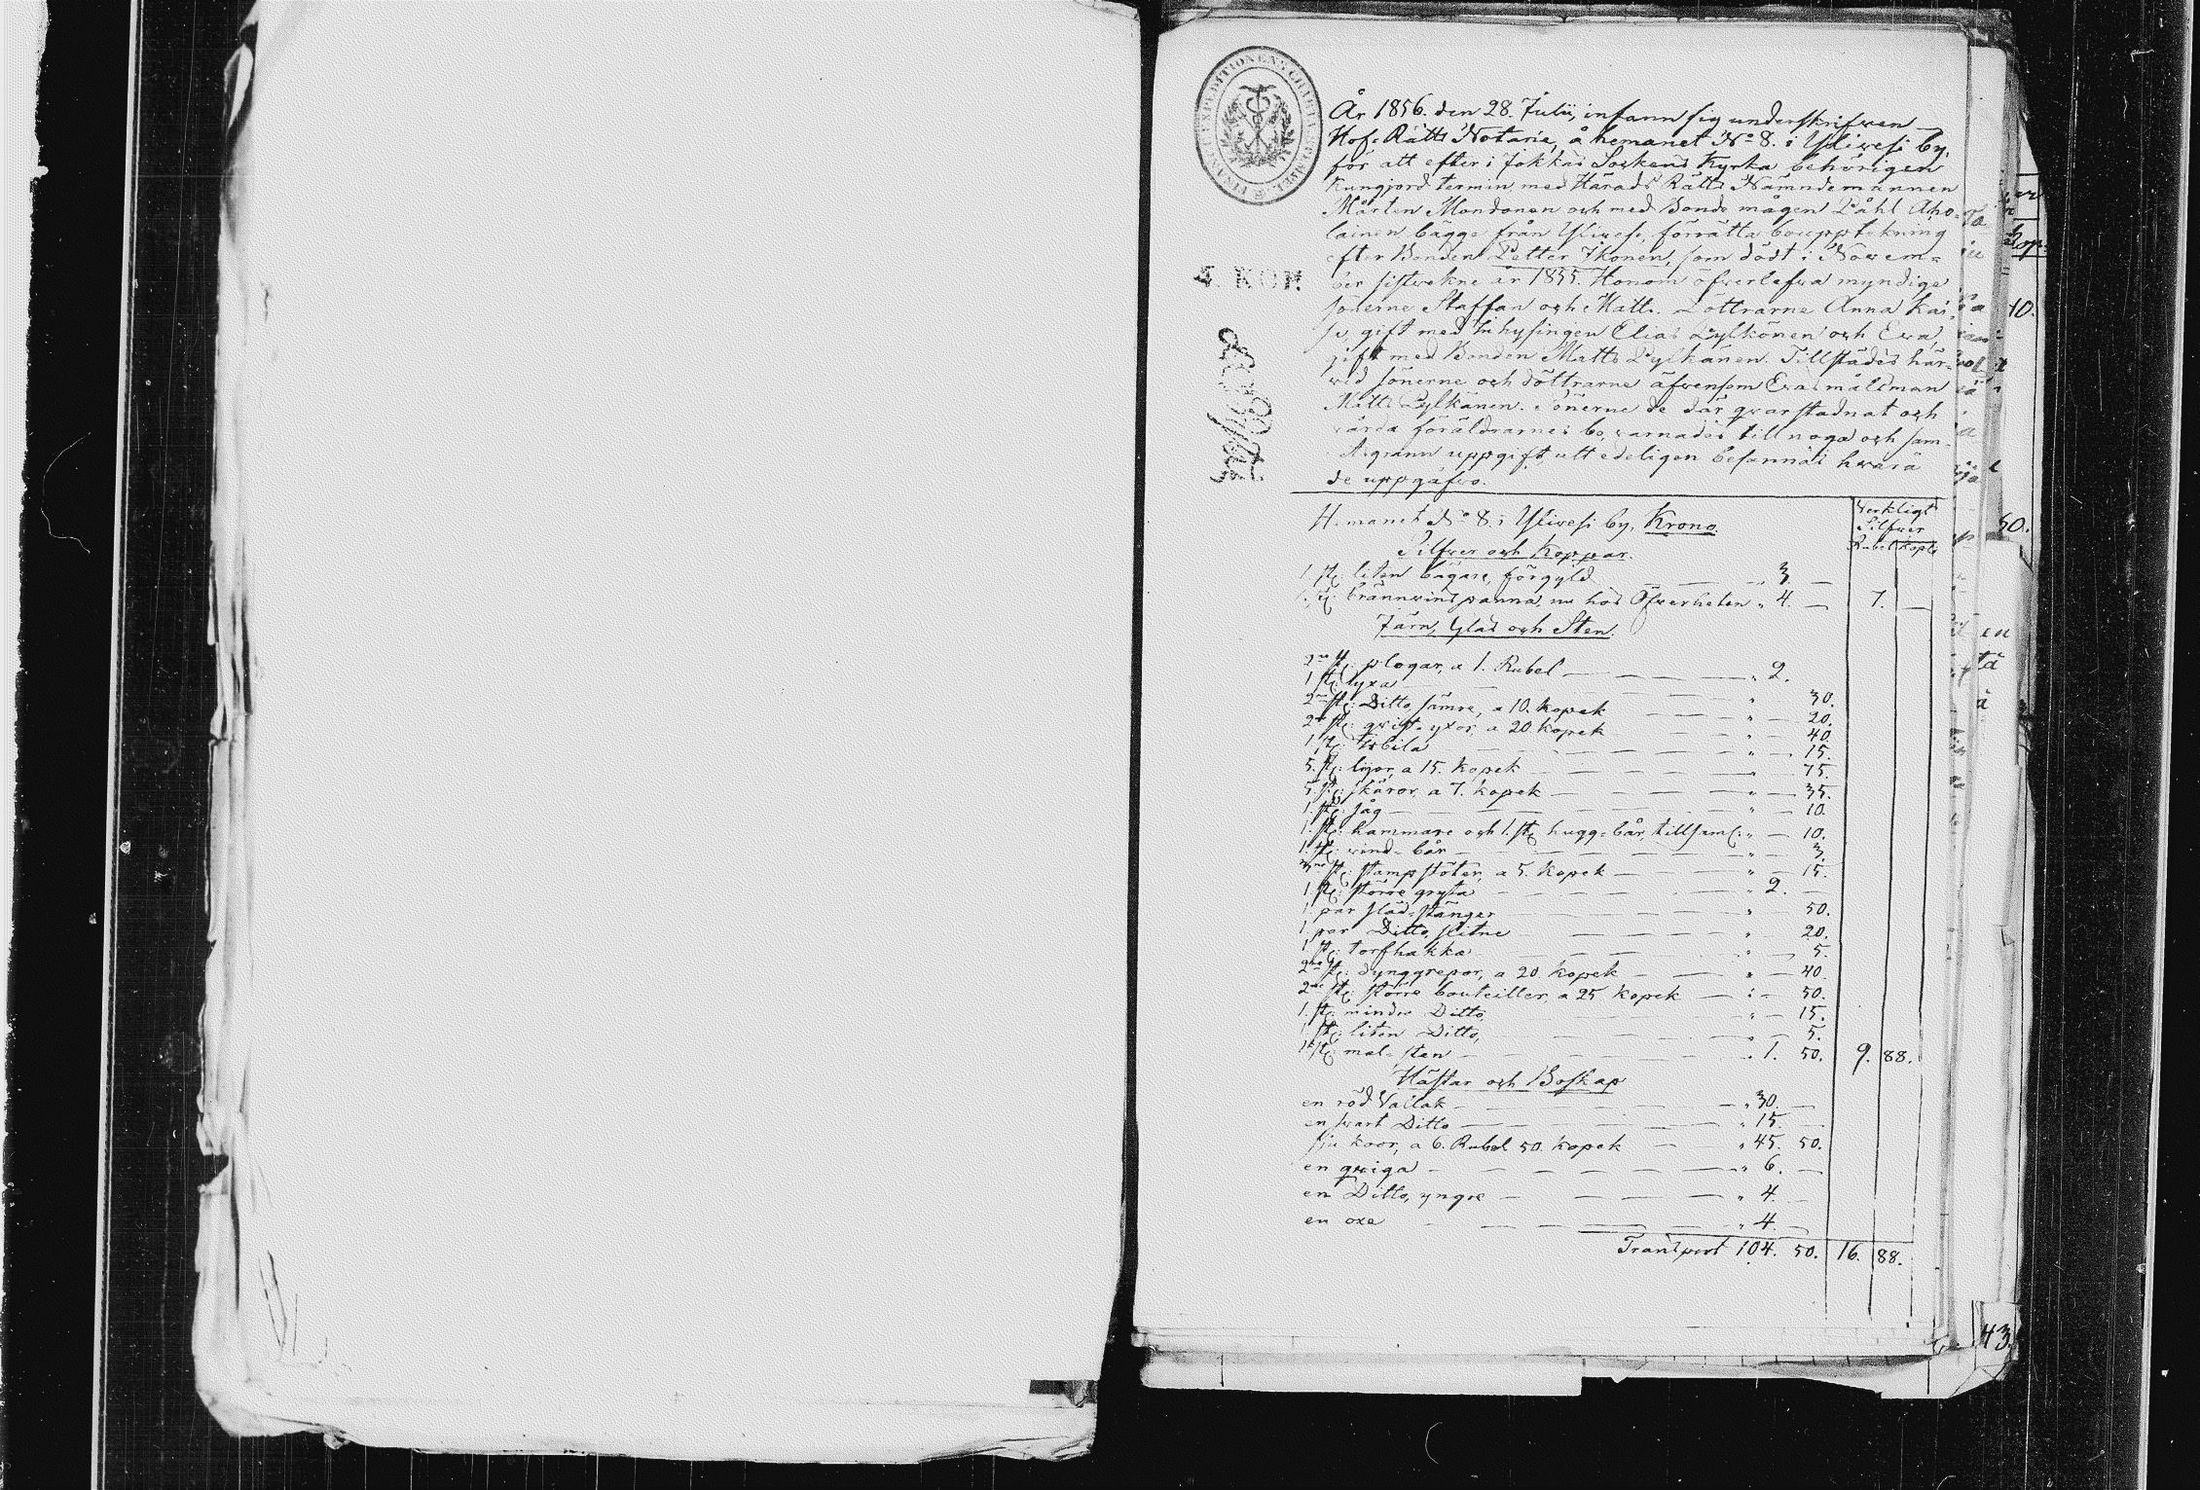 År 1856. den 28. Julii, infann sig underskrifven
Hof-Rätts Notarie, å hemanet No 8. i Ylivesi by,
för att efter i Jokkas Sockens Kyrka behörigen
kungjord termin med Härads Rätts Nämndemannen
Mårten Mondonen och med Bonde mågen Påhl Aho-
lainen bägge från Ylivesi, förrätta bouppteckning
efter Bonden Petter Ikonen, som dödt i Novem-
ber sistvekne år 1855. Honom öfverlefva myndige
Sönerne Staffan och Matts. Döttrarne Anna Kai-
sa, gift med Inhysingen Elias Pylkänen och Eva,
gift med Bonden Matts Pylkänen. Tillstädes här-
vid sönerne och döttrarne äfvensom Evas målsman
Matts Pylkänen. Sönerne de där qvarstadnat och
vårda föräldrarnes bo, varnades till noga och sam-
vetsgrann uppgift att edeligen befannas hvarå
de uppgåfvo.
4. KOP.
Hemanet No 8. i Ylivesi by, Krono.
Verkligt
Silfver
Rubel Kopk
Silfver och Koppar.
1 st: liten bägare, förgyld " 3. —
1 st: brännvins panna, nu hos Öfverheten " 4. — 7. —
Järn, Glas och Sten.
2ne st: plogar, a 1. Rubel " 2.
1 st: yxa " 30.
2ne st: Ditto, sämre, a 10. kopek " 20.
2ne st: qvist-yxor, a 20. kopek " 40.
1 st: bila " 15.
5. st: liyor, a 15. kopek " 75.
5. st: skäror, a 7. kopek " 35.
1 st: såg " 10.
1. st: hammare och 1. st: hugg-bår, tillsam: " 10.
1. st: vind-bår 3.
3ne st: stampstötar, a 5. kopek 15.
1. st: större gryta " 2.
1 par släd-stänger " 50.
1. par Ditto, slitne " 20.
1 st: torfhakka " 5.
2ne st: dynggrepor, a 20 kopek " 40.
2ne st: större bouteiller, a 25 kopek 50.
1. st: mindre Ditto, " 15.
1 st: liten Ditto, 5.
1 st: mal-sten 1. 50. 9. 88.
Hästar och Boskap
en röd Vallak " 30. —
en svart Ditto " 15. —
sju koor, a 6. Rubel 50. kopek " 45. 50.
en qviga " 6. —
en Ditto, yngre " 4. —
en oxe " 4. —
Transport 104. 50. 16. 88.
10.
50.
43.